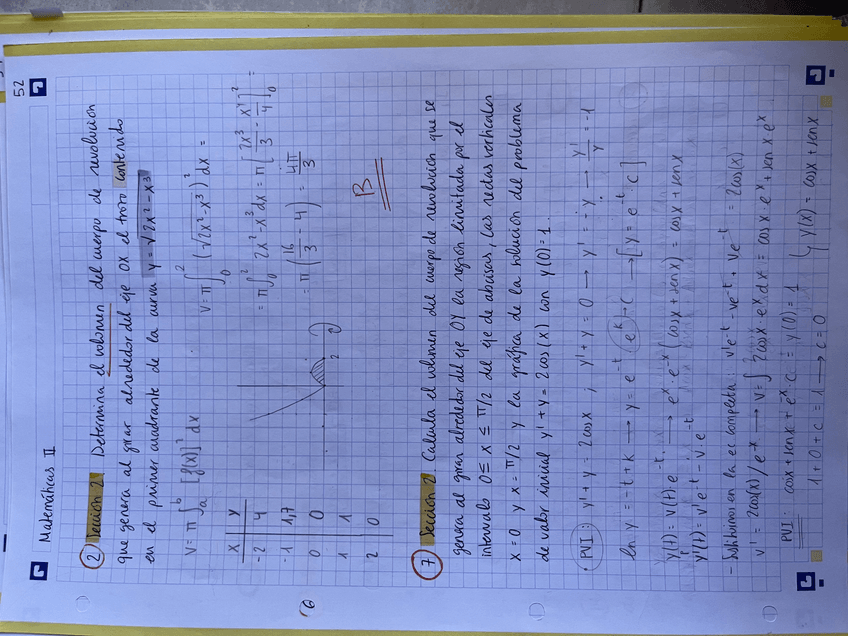 52
Matemáticas II
2 Sección 2. Determina el volumen del cuerpo de revolución
que genera al girar alrededor del eje OX el trozo contenido
en el primer cuadrante de la curva y = √2x² - x³
V = π ∫ₐᵇ [f(x)]² dx
V = π ∫₀² (√2x²-x³)² dx =
= π ∫₀² 2x² - x³ dx = π [2x³/3 - x⁴/4]₀² =
= π (16/3 - 4) = 4π/3
B
x y
-2 4
-1 1,7
0 0
1 1
2 0
2
7 Sección 2. Calcula el volumen del cuerpo de revolución que se
genera al girar alrededor del eje OY la región limitada por el
intervalo 0 ≤ x ≤ π/2 del eje de abscisas, las rectas verticales
x = 0 y x = π/2 y la gráfica de la solución del problema
de valor inicial y' + y = 2cos(x) con y(0) = 1.
PVI: y' + y = 2cosx ; y' + y = 0 → y' = -y → y'/y = -1
ln y = -t + k → y = e^-t · e^k → c → [y = e^-t · c]
yp(t) = v(t) · e^-t → e^x · e^-x (cosx + senx) = cosx + senx
y'(t) = v'e^-t - v e^-t
- Sustituimos en la ec completa: v'e^-t - ve^-t + ve^-t = 2cos(x)
v' = 2cos(x)/e^-x → v = ∫ 2cosx · e^x dx = cosx · e^x + senx · e^x
PVI: cosx + senx + e^x · c = y(0) = 1
1 + 0 + c = 1 → c = 0
y(x) = cosx + senx